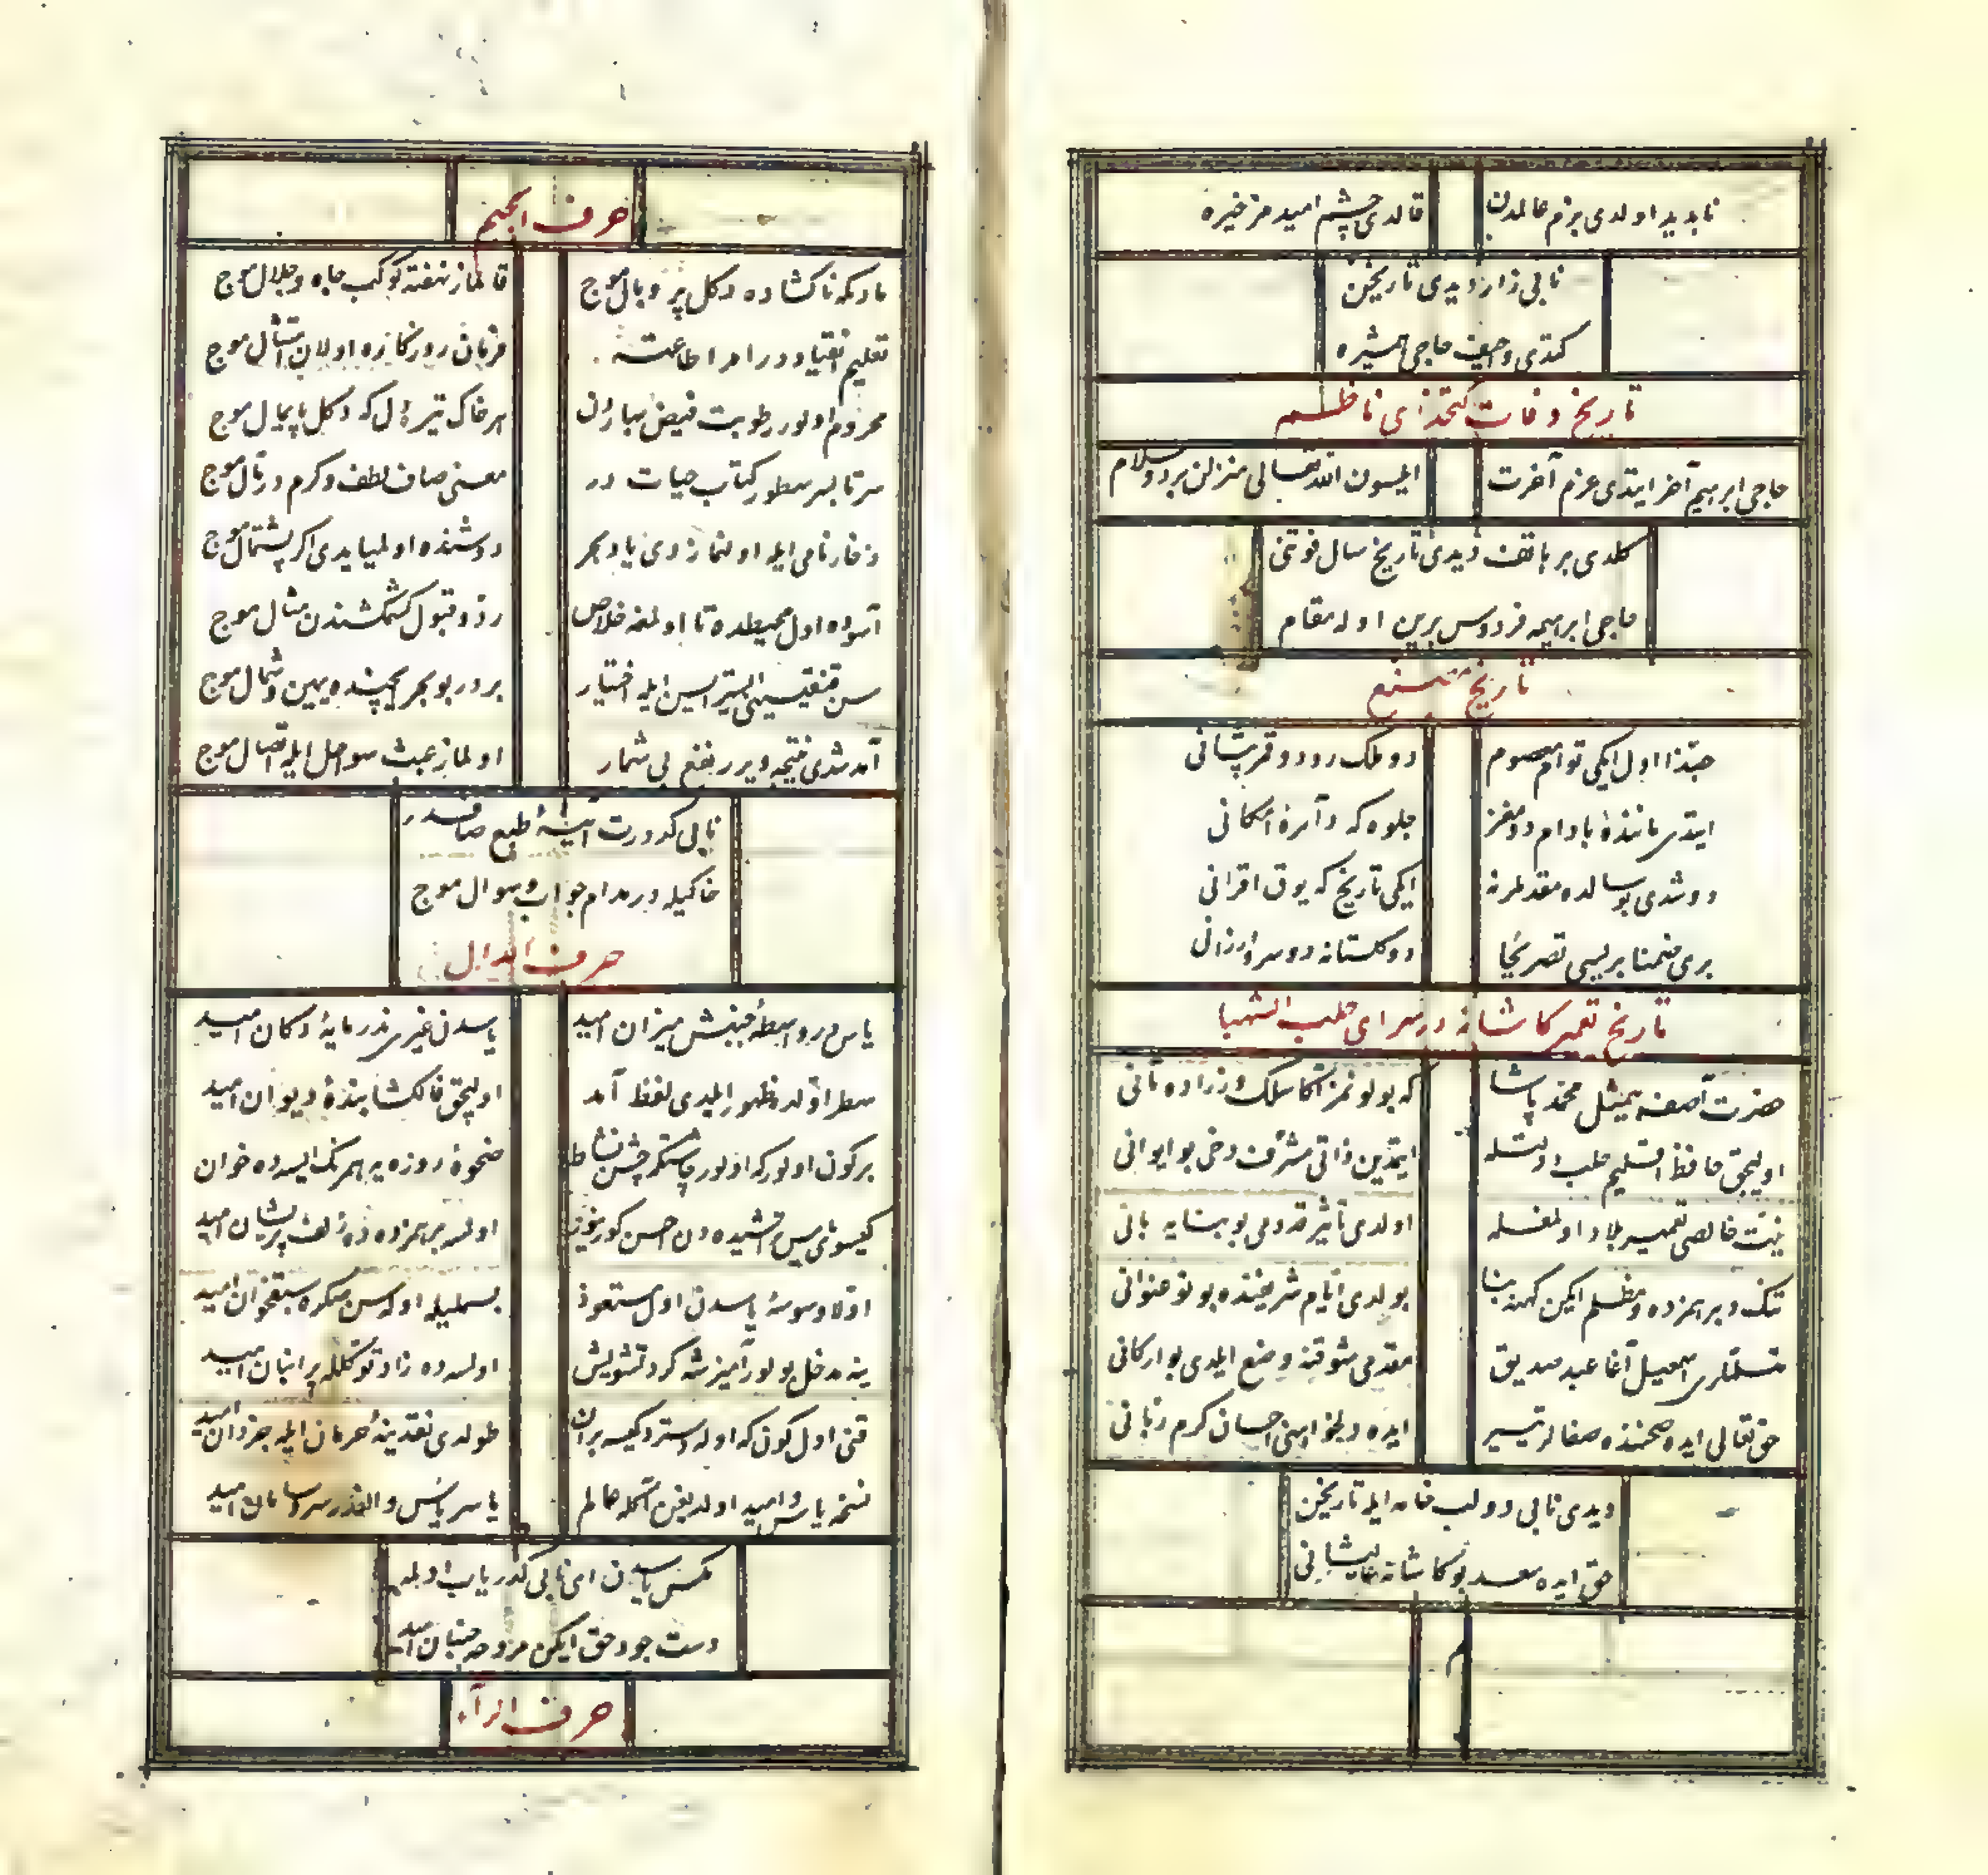 نابدید اولدی بزم عالمدن قالدی چشم امیدمز خیره
نابی زار دیدی تاریخن
کتدی واصف حاجی همشیره
تاریخ وفات کتخدای ناظم
حاجی ابرهیم آخر ایتدی عزم آخرت ایلسون الله تعالی منزلن برد وسلام
کلدی بر هاتف دیدی تاریخ سال فوتنی
حاجی ابراهیمه فردوس برین اوله مقام
تاریخ
حبذا اول ایکی توأم معصوم دو ملک رو دو قمر پیشانی
ایتدی مانندۀ بادام دو مغز جلوه که دائرۀ امکانی
دوشدی بو سالده مقدملرنه ایکی تاریخ که یوق اقرانی
بری ضمنا بریسی تصریحا دو کلستانه دو سرو ارزانی
تاریخ تعمیر کاشانه در سرای حلب الشهبا
حضرت آصف بیمثل محمد پاشا که بولونمز اکا سلک وزراده ثانی
اولیجق حافظ اقلیم حلب دولتله ایتدین ذاتی مشرف دخی بو ایوانی
نیت خالصی تعمیر بلاد اولمغله اولدی تأثیر قدومی بو بنایه بانی
تنک و برهمزده و مظلم ایکن کهنه بنا بولدی ایام شریفنده بو نو عنوانی
متسلملری اسمعیل آغا عبد صدیق مقدمی شوقنه وضع ایلدی بو ارکانی
حق تعالی ایده صحننده صفالر تیسیر ایده دلخواهنی احسان کرم ربانی
دیدی نابی دولب خامه ایله تاریخن
حق ایده سعد بو کاشانۀ عالیشانی
م
حرف الجیم
بادکه ناکشاده دکل پر و بال موج قالماز نهفته کوکب جاه وجلال موج
تعلیم انقیاد در امر اطاعته فرمان روزکاره اولان امتثال موج
محروم اولور رطوبت فیض بهاردن هر خاک تیره دل که دکل پایمال موج
سرتابسر سطور کتاب حیات در معنی صاف لطف وکرم در مآل موج
زخار نامی ایله اولنماز دی یاد بحر دوشنده اولمیایدی اکر پشتمال موج
آسوده اول محیطده تا اولمغه خلاص رد وقبول کشمکشندن مثال موج
سن قنغیسینی ایستر ایسن ایله اختیار بردر بو بحر ایچنده یمین وشمال موج
آمد شدی نتیجه ویرر نفع بی شمار اولماز عبث سواحل ایله اتصال موج
نابی کدورت آینۀ طبع صافدر
خاکیله در مدام جواب وسوال موج
حرف الدال
یأس در واسطۀ جنبش میزان امید یأسدن غیری ندر مایۀ دکان امید
سطر اولده ظهور ایلدی لفظ آمد اولیجق فالکشایندۀ دیوان امید
برکون اولور که اولور چاشتکه جشن نشاط ضحوۀ روزه یه همرنک ایسه ده خوان
کیسوی یأس تراشیده دن احسن کورینور اولسه برهمزده ده زلف پریشان امید
اولا وسوسۀ یأسدن اول مستعوذ بسملیله اوله سن صکره سبقخوان امید
ینه مدخل بولور آمیزشه کرد تشویش اولسه ده زاد توکلله پر انبان امید
قنی اول کون که اوله دسترد کیسه بران طولدی نقدینۀ حرمان ایله جزدان امید
نسخۀ یأس وامید اولدیغن آکله عالم یا سر یأس و الفدر سر وسامان امید
عکس یأسدن ای نابی کدریاب اولمه
دست جود حق ایکن مروحه جنبان امید
حرف الرآء